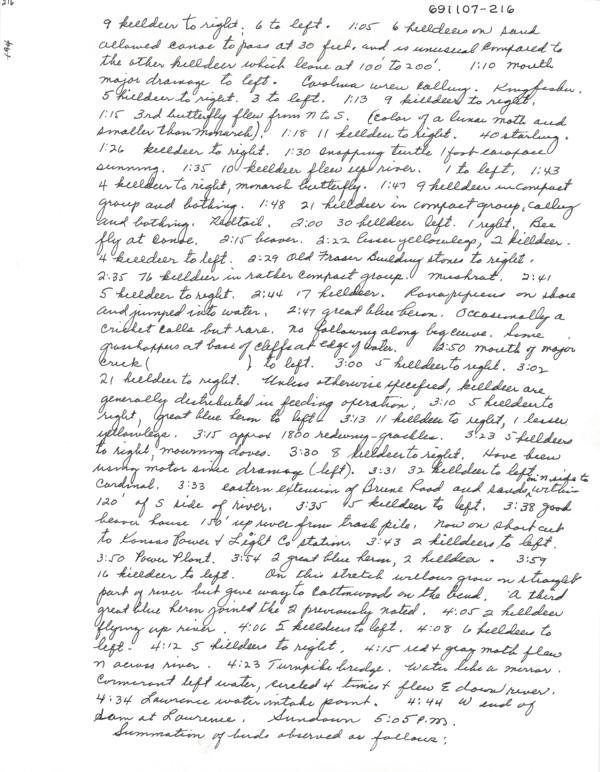 216
691107-216
9 killdeer to right; 6 to left. 1:05 6 killdeers on sand
allowed canoe to pass at 30 feet, and is unusual compared to
the other killdeer which leave at 100' to 200'. 1:10 mouth
major drainage to left. Carolina wren calling. Kingfisher.
5 killdeer to right, 3 to left. 1:13 9 killdeer to right.
1:15 3rd butterfly flew from N to S. (color of a lunar moth and
smaller than monarch). 1:18 11 killdeer to right. 40 starling.
1:26 killdeer to right. 1:30 snapping turtle 1 foot carapace
sunning. 1:35 10 killdeer flew up river. 1 to left, 1:43
4 killdeer to right, monarch butterfly. 1:47 9 killdeer in compact
group and bathing. 1:48 21 killdeer in compact group, calling
and bathing. Redtail. 2:00 30 killdeer left. 1 right, Bee
fly at canoe. 2:15 beaver. 2:22 lesser yellowlegs, 2 killdeer.
4 killdeer to left. 2:29 Old Fraser Building stones to right.
2:35 76 killdeer in rather compact group. Muskrat. 2:41
5 killdeer to right. 2:44 17 killdeer. Rana pipiens on shore
and jumped into water. 2:47 great blue heron. Occasionally a
cricket calls but rare. No following along big curve. Some
grasshoppers at base of cliffs at edge of water. 2:50 mouth of major
creek ( ) to left. 3:00 5 killdeer to right. 3:02
21 killdeer to right. Unless otherwise specified, killdeer are
generally distributed in feeding operation. 3:10 5 killdeer to
right, great blue heron to left. 3:13 11 killdeer to right, 1 lesser
yellowlegs. 3:15 approx 1800 redwing-grackles. 3:23 5 killdeers
to right, mourning doves. 3:30 8 killdeer to right. Have been
using motor since drainage (left). 3:31 32 killdeer to left on N side to
Cardinal. 3:33 eastern extension of Brune Road and sands, within
120' of S side of river. 3:35 5 killdeer to left. 3:38 good
beaver house 150' up river from trash pile. Now on short cut
to Kansas Power & Light Co station. 3:43 2 killdeers to left.
3:50 Power Plant. 3:54 2 great blue heron, 2 killdeer. 3:59
16 killdeer to left. On this stretch willows grow on straight
part of river but give way to cottonwood on the bend. A third
great blue heron joined the 2 previously noted. 4:05 2 killdeer
flying up river. 4:06 5 killdeers to left. 4:08 6 killdeers to
left. 4:12 5 killdeers to right. 4:15 red & gray moth flew
N across river. 4:23 Turnpike bridge. Water like a mirror.
Cormorant left water, circled 4 times & flew E down river.
4:34 Lawrence water intake point. 4:44 W end of
dam at Lawrence. Sundown 5:05 P.M.
Summation of birds observed as follows: